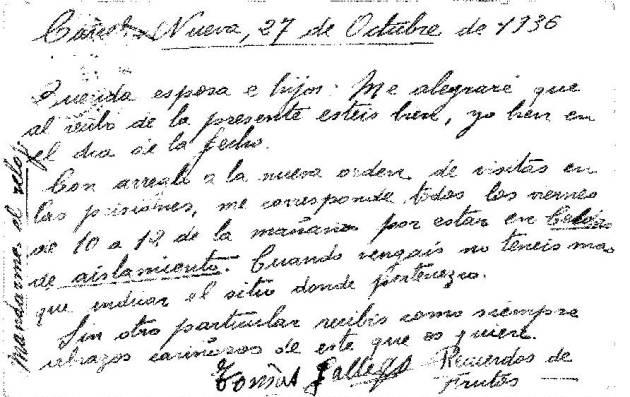 Carcel Nueva, 27 de Octubre de 1936
Querida esposa e hijos: Me alegraré que
al recibo de la presente esteis bien, yo bien en
el dia de la fecha.
Con arreglo a la nueva orden de visitas en
las prisiones, me corresponde todos los viernes
de 10 a 12 de la mañana por estar en Celdas
de aislamiento. Cuando vengais no teneis mas
que indicar el sitio donde pertenezco.
Sin otro particular recibis como siempre
abrazos cariñosos de este que os quiere.
Tomás Gallego Recuerdos de
Frutos
Mandarme el reloj